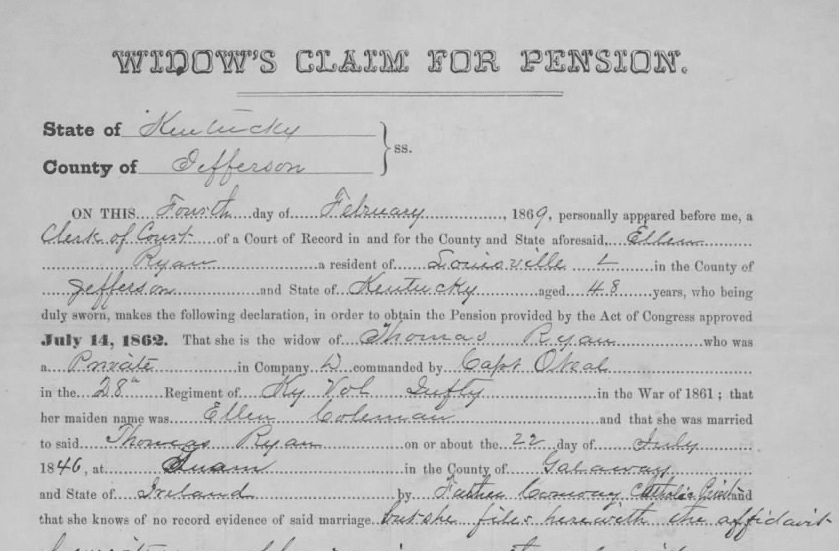 WIDOW'S CLAIM FOR PENSION.
State of Kentucky
County of Jefferson } ss.
ON THIS Fourth day of February, 1869, personally appeared before me, a
Clerk of Court of a Court of Record in and for the County and State aforesaid, Ellen
Ryan a resident of Louisville in the County of
Jefferson and State of Kentucky aged 48 years, who being
duly sworn, makes the following declaration, in order to obtain the Pension provided by the Act of Congress approved
July 14, 1862. That she is the widow of Thomas Ryan who was
a Private in Company D commanded by Capt O'Neal
in the 28th Regiment of Ky Vol Infty in the War of 1861; that
her maiden name was Ellen Coleman and that she was married
to said Thomas Ryan on or about the 22 day of July
1846, at Tuam in the County of Galaway
and State of Ireland by Father Conway Catholic Priest and
that she knows of no record evidence of said marriage but she files herewith the affidavit